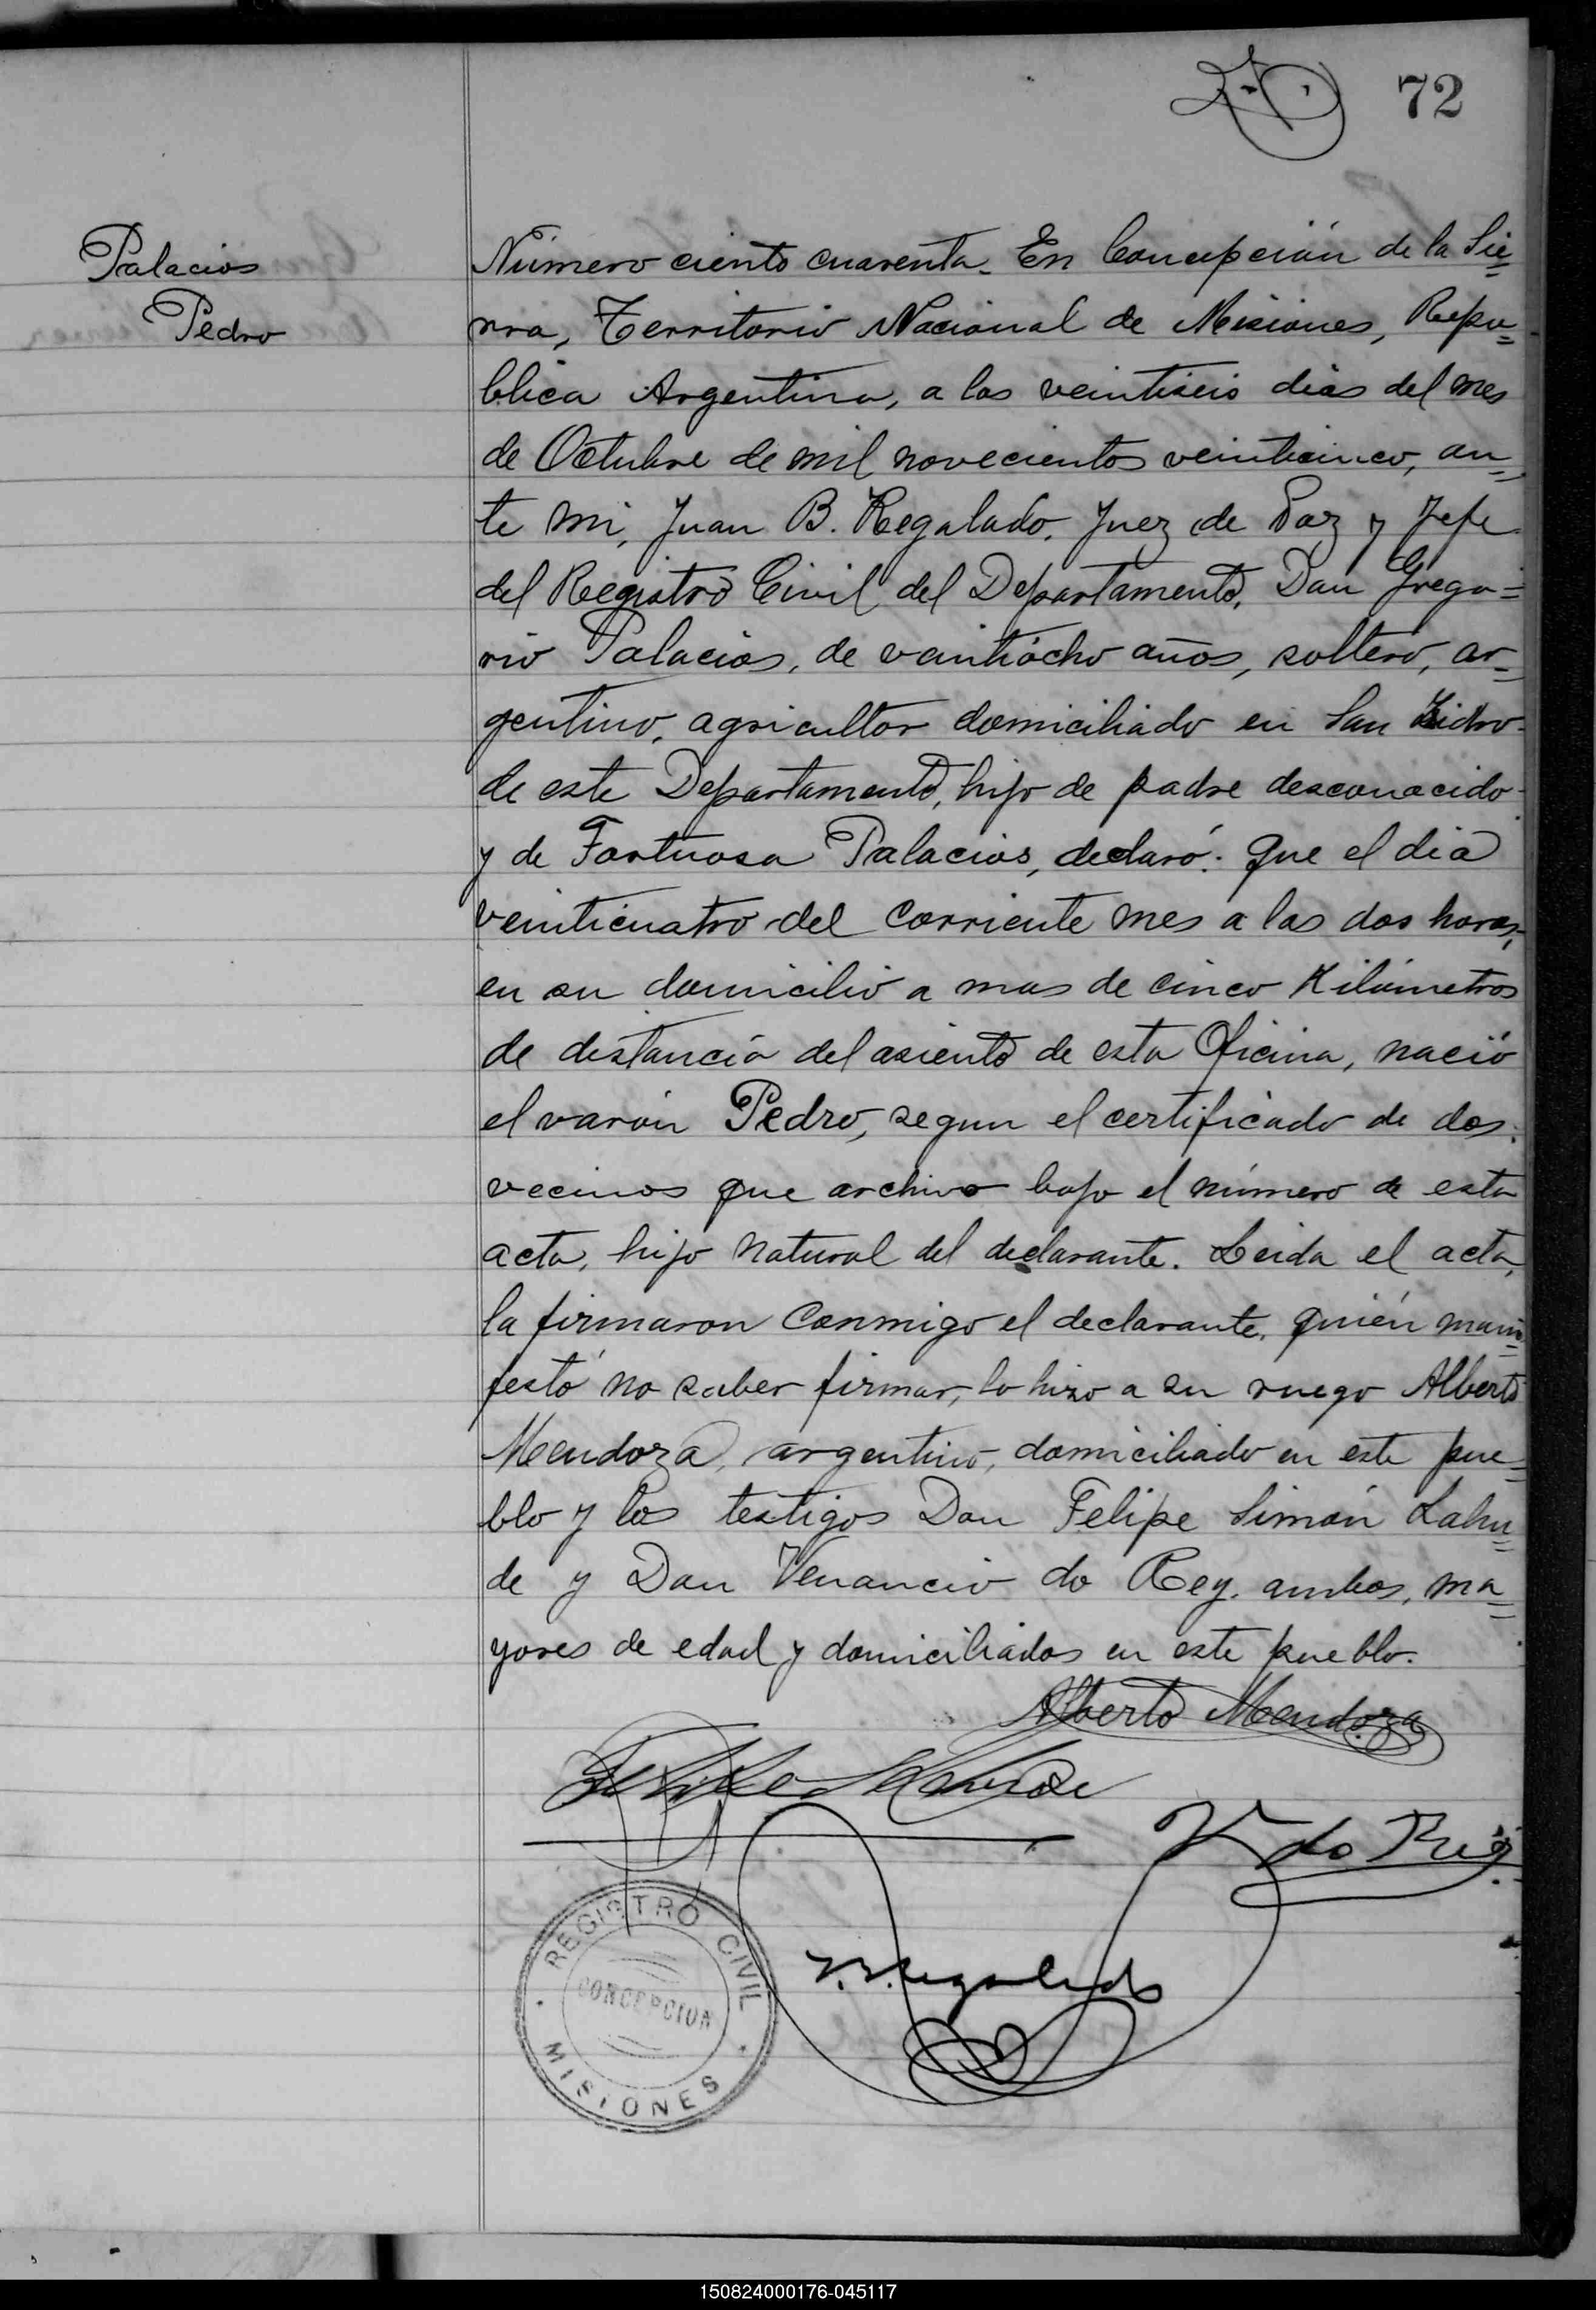 72
Palacios
Pedro
Número ciento cuarenta. En Concepción de la Sie=
rra, Territorio Nacional de Misiones, Repu=
blica Argentina, a los veintiseis dias del mes
de Octubre de mil novecientos veinticinco, an=
te mi, Juan B. Regalado, Juez de Paz y Jefe
del Registro Civil del Departamento, Don Grego=
rio Palacios, de veintiocho años, soltero, ar=
gentino, agricultor domiciliado en San Isidro
de este Departamento, hijo de padre desconocido
y de Fortuosa Palacios, declaró: Que el dia
veinticuatro del corriente mes a las dos horas,
en su domicilio a mas de cinco Kilómetros
de distancia del asiento de esta Oficina, nació
el varón Pedro, segun el certificado de dos
vecinos que archivo bajo el número de esta
acta, hijo natural del declarante. Leida el acta,
la firmaron conmigo el declarante, quién mani=
festó no saber firmar, lo hizo a su ruego Alberto
Mendoza, argentino, domiciliado en este pue=
blo y los testigos Don Felipe Simón Lahu=
de y Don Venancio do Rey, ambos, ma=
yores de edad y domiciliados en este pueblo.
Alberto Mendoza
Felipe S Lahude
V do Rey
J.B. Regalado
REGISTRO CIVIL
CONCEPCION
MISIONES
150824000176-045117